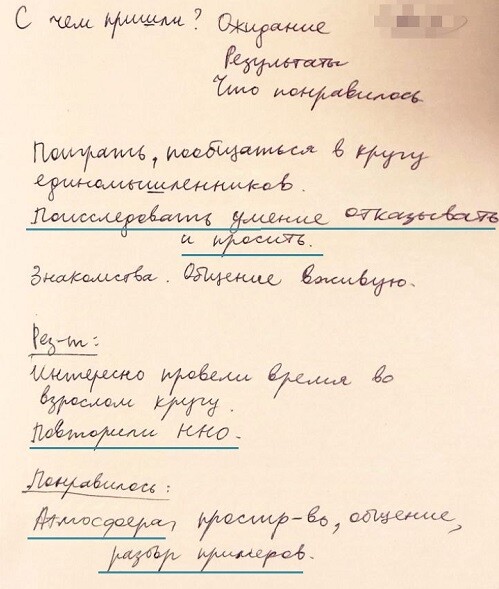 С чем пришли? Ожидание
Результаты
Что понравилось
Поиграть, пообщаться в кругу
единомышленников.
Поисследовать умение отказывать
и просить.
Знакомства. Общение вживую.
Рез-т:
Интересно провели время во
взрослом кругу.
Повторили ННО.
Понравилось:
Атмосфера, простр-во, общение,
разбор примеров.